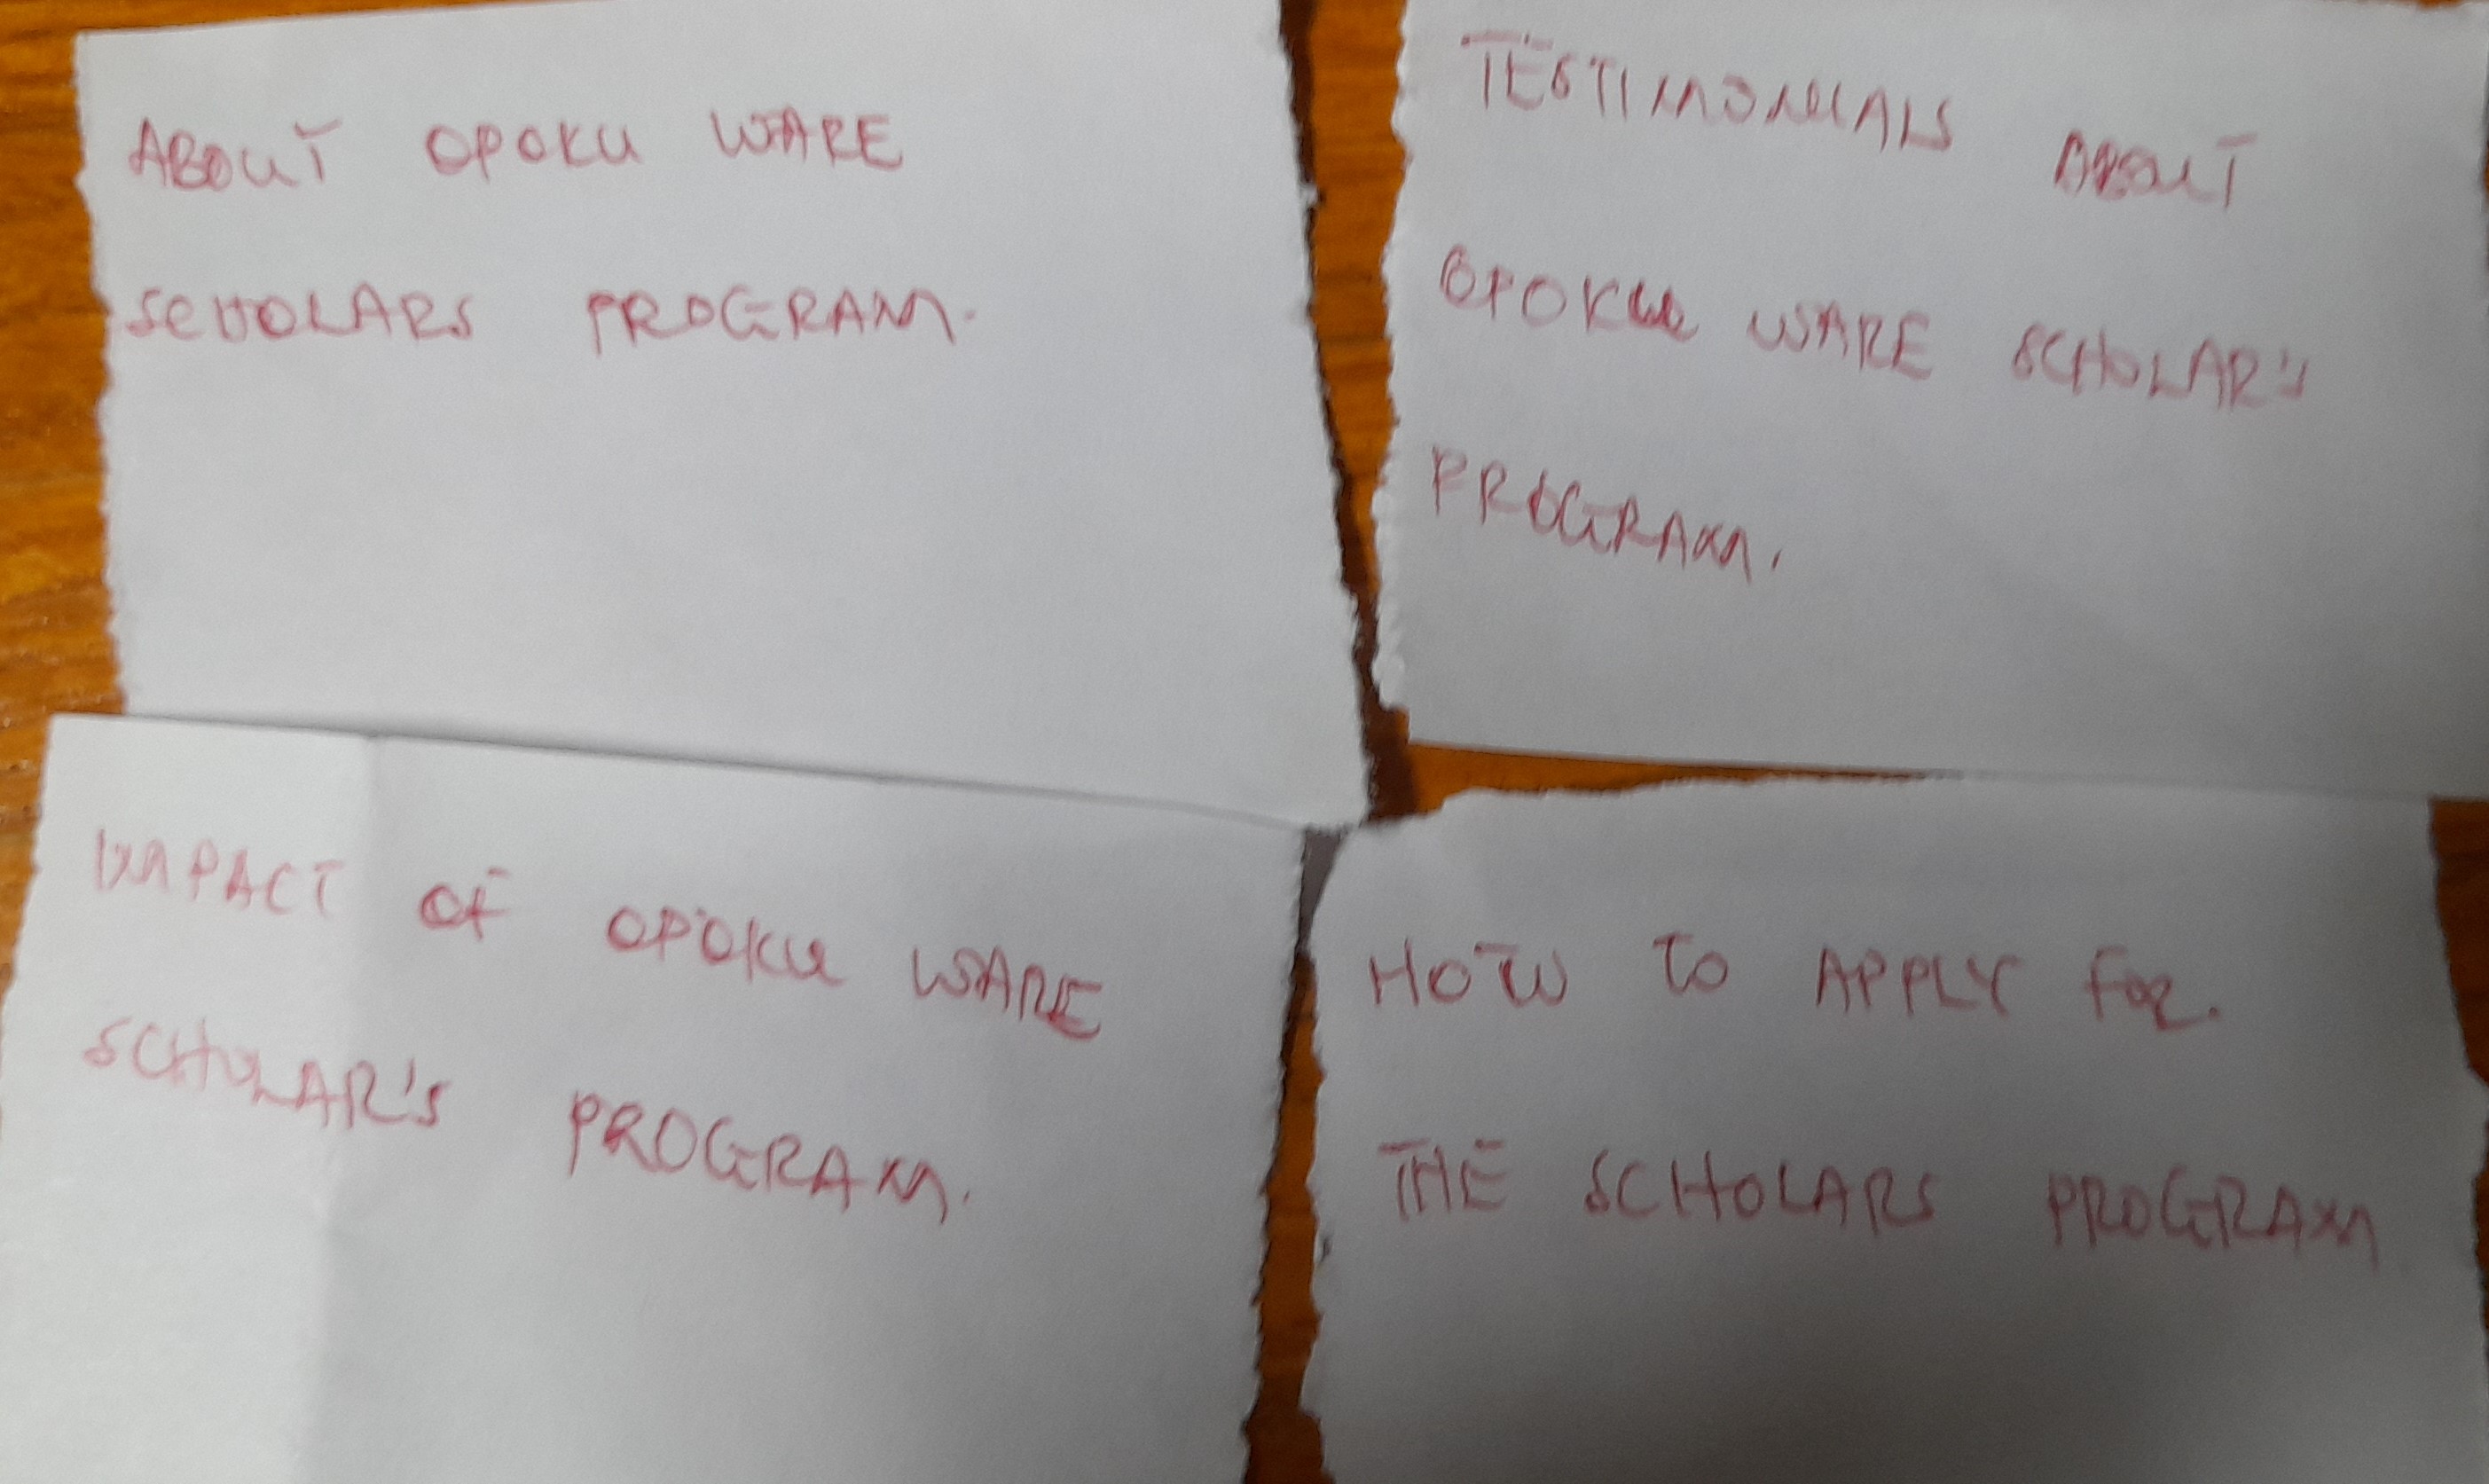 ABOUT OPOKU WARE
SCHOLARS PROGRAM.
TESTIMONIALS ABOUT
OPOKU WARE SCHOLAR'S
PROGRAM.
IMPACT OF OPOKU WARE
SCHOLAR'S PROGRAM.
HOW TO APPLY FOR.
THE SCHOLARS PROGRAM